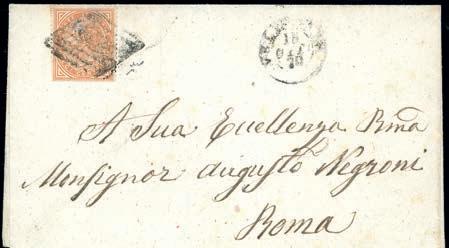 18
OTT
70
A Sua Eccellenza Rma
Monsignor Augusto Negroni
Roma